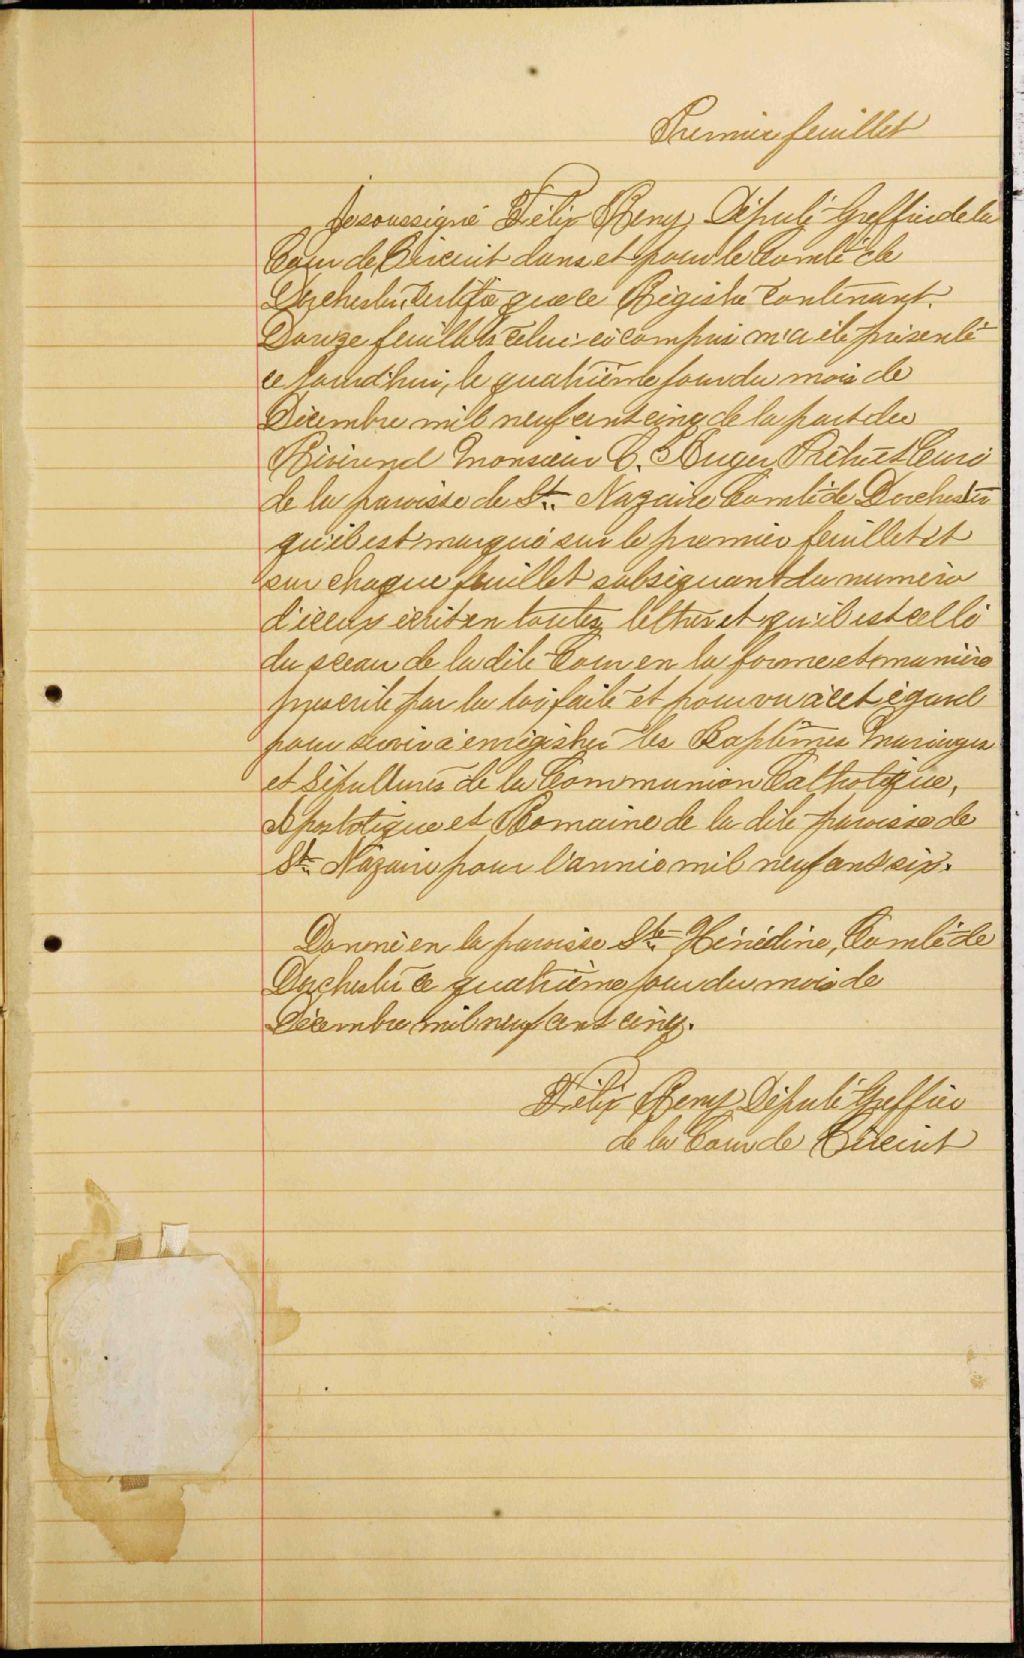 Premier feuillet
Je soussigné Félix Remy, Député Greffier de la
Cour de Circuit dans et pour le Comté de
Dorchester, certifie que ce Régistre contenant
Douze feuillets celui-ci compris m'a été présenté
ce jourd'hui, le quatrième jour du mois de
Décembre mil neuf cent cinq de la part du
Révérend Monsieur C. Auger Prêtre et Curé
de la paroisse de St. Nazaire Comté de Dorchester
qu'il est marqué sur le premier feuillet et
sur chaque feuillet subséquant du numéro
d'iceux écrit en toutes lettres et qu'il est cellé
du sceau de la dite Cour en la forme et manière
prescrite par la loi faite et pourvu à cet égard
pour servir à enrégistrer les Baptêmes Mariages
et Sépultures de la Communion Catholique,
Apostolique et Romaine de la dite paroisse de
St. Nazaire pour l'année mil neuf cent six.
Donné en la paroisse Ste. Hénédine, Comté de
Dorchester ce quatrième jour du mois de
Décembre mil neuf cent cinq.
Félix Remy Député Greffier
de la Cour de Circuit